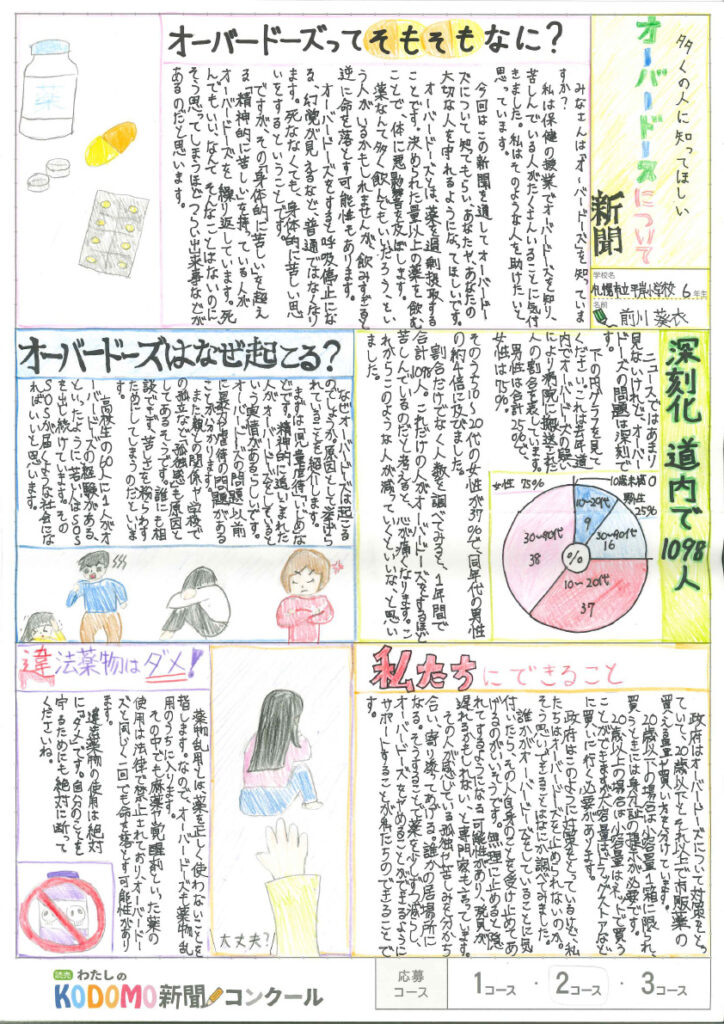 多くの人に知ってほしい
オーバードーズについて
新聞
学校名
札幌市立平岸小学校 6年生
名前
前川葵衣
オーバードーズってそもそもなに?
みなさんは「オーバードーズ」を知っていま
すか?
私は保健の授業でオーバードーズを知り、
苦しんでいる人がたくさんいることに気付
きました。私はそのような人を助けたいと
思っています。
今回はこの新聞を通してオーバードー
ズについて知ってもらい、あなたや、あなたの
大切な人を守れるようになってほしいです。
オーバードーズとは、薬を過剰摂取する
ことです。決められた量以上の薬を飲む
ことで、体に悪影響を及ぼします。
薬なんて多く飲んでもいいだろう、とい
う人がいるかもしれませんが、飲みすぎると
逆に命を落とす可能性もあります。
オーバードーズをすると呼吸停止にな
る、幻覚が見えるなど普通ではなくなり
ます。死ななくても、身体的に苦しい思
いをするということです。
ですが、その「身体的に苦しい」を超え
る「精神的に苦しい」を持っている人が
オーバードーズを繰り返しています。死
んでもいい、なんてそんなことはないのに
そう思ってしまうほどつらい出来事などが
あるのだと思います。
薬
深刻化 道内で1098人
ニュースではあまり
見ないけれど、オーバー
ドーズの問題は深刻で
す。
下の円グラフを見て
ください。これは去年道
内でオーバードーズの疑い
により病院に搬送された
人の割合を表しています。
男性は合計25%で、
女性は75%。
そのうち10〜20代の女性が37%で、同年代の男性
の約4倍に及びました。
割合だけでなく人数を調べてみると、1年間で
合計1098人。これだけの人がオーバードーズをするほど
苦しんでいるのだと考えると、心が痛くなります。こ
れからこのような人が減っていくといいな、と思い
ました。
女性 75%
10歳未満 0
男性 25%
10〜20代
9
30〜90代
16
30〜90代
38
10〜20代
37
%
オーバードーズはなぜ起こる?
なぜオーバードーズは起こる
のでしょうか。原因として挙げら
れていることを紹介します。
まずは「児童虐待」「いじめ」な
どです。精神的に追いこまれた
人がオーバードーズをしていると
いう実情があるらしいです。
オーバードーズの問題以前
に暴力や虐待の問題がある
ことが分かります。
また、親との関係や学校で
の孤立など、孤独感も原因と
してあるそうです。誰にも相
談できず、苦しさを紛らわす
ためにしてしまうのだといいま
す。
高校生の60人に1人がオ
ーバードーズの経験がある、
といったように、若い人はSOS
を出し続けています。その
SOSが届くような社会にな
ればいいと思います。
私たちにできること
政府はオーバードーズについて対策をとっ
ていて、20歳以下とそれ以上で市販薬の
買える量や買い方を分けています。
20歳以下の場合は小容量1箱に限られ
買うときには身分証の提示が必要です。
20歳以上の場合は小容量はネットで買う
ことができますが、大容量はドラッグストアなど
に買いに行く必要があります。
政府はこのように対策をとっているけど、私
たちはオーバードーズを止められないのか。
そう思い、できることはないか調べてみました。
誰かがオーバードーズをしていることに気
付いたら、その人自身のことを受け止めてあ
げるのがいいそうです。無理に止めると隠
れてするようになる可能性があり、発見が
遅れるかもしれない、と専門家も言っています。
その人が感じている孤独や苦しみを分かち
合い、寄り添ってあげる。誰かの居場所に
なる。そうすることで薬を少しずつ減らし、
オーバードーズをやめることができるように
サポートすることが私たちのできることで
す。
大丈夫?
違法薬物はダメ!
薬物乱用とは、薬を正しく使わないことを
指します。なので、オーバードーズも薬物乱
用のうちに入ります。
その中でも麻薬や覚醒剤といった薬の
使用は法律で禁止されており、オーバードー
ズと同じく一回でも命を落とす可能性があり
ます。
違法薬物の使用は絶対
に「ダメ」です。自分のことを
守るためにも絶対に断って
くださいね。
読売 わたしの
KODOMO新聞コンクール
応募
コース
1コース ・ 2コース ・ 3コース